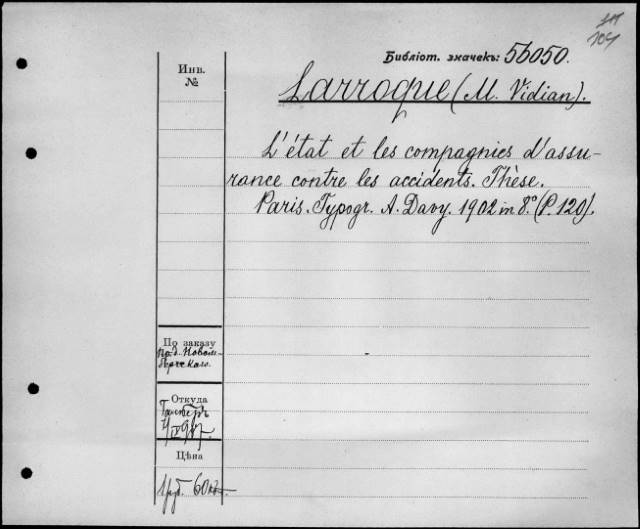 104
Библіот. значекъ: 56050.
Инв.
№
Larroque (M. Vidian).
L'état et les compagnies d'assu-
rance contre les accidents. Thèse.
Paris. Typogr. A. Davy. 1902 in 8.° (P. 120).
По заказу
Откуда
Цѣна
1 руб. 60 к.